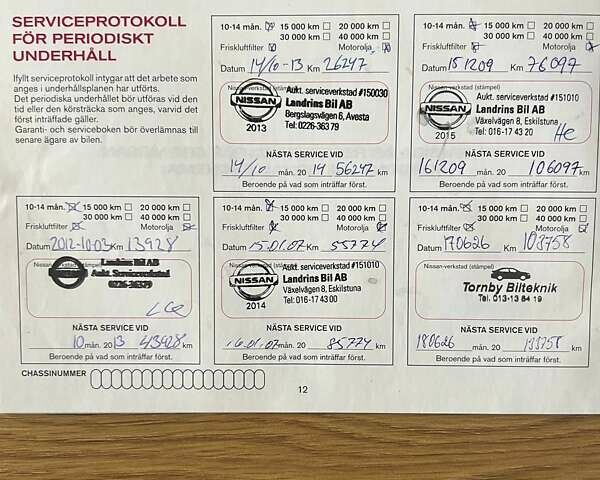 SERVICEPROTOKOLL
FÖR PERIODISKT
UNDERHÅLL
Ifyllt serviceprotokoll intygar att det arbete som
anges i underhållsplanen har utförts.
Det periodiska underhållet bör utföras vid den
tid eller den körsträcka som anges, varvid det
först inträffade gäller.
Garanti- och serviceboken bör överlämnas till
senare ägare av bilen.
10-14 mån. 15 000 km 20 000 km
30 000 km 40 000 km
Friskluftfilter Motorolja
Datum 2012-10-03 Km 13928
Nissan-verkstad (stämpel)
Landrins Bil AB
Aukt. Serviceverkstad
0226-36379
NÄSTA SERVICE VID
10 mån. 2013 43928 km
Beroende på vad som inträffar först.
10-14 mån. 15 000 km 20 000 km
30 000 km 40 000 km
Friskluftfilter Motorolja
Datum 14/10-13 Km 26247
Aukt. serviceverkstad #150030
NISSAN
Landrins Bil AB
Bergslagsvägen 6, Avesta
Tel: 0226-363 79
2013
NÄSTA SERVICE VID
14/10 mån. 20 14 56247 km
Beroende på vad som inträffar först.
10-14 mån. 15 000 km 20 000 km
30 000 km 40 000 km
Friskluftfilter Motorolja
Datum 15.01.07 Km 55774
Aukt. serviceverkstad #151010
NISSAN
Landrins Bil AB
Växelvägen 8, Eskilstuna
Tel: 016-17 43 00
2014
NÄSTA SERVICE VID
16.01.07 mån. 20 85774 km
Beroende på vad som inträffar först.
10-14 mån. 15 000 km 20 000 km
30 000 km 40 000 km
Friskluftfilter Motorolja
Datum 151209 Km 76097
Nissan-verkstad (stämpel)
Aukt. serviceverkstad #151010
NISSAN
Landrins Bil AB
Växelvägen 8, Eskilstuna
Tel: 016-17 43 20
2015
NÄSTA SERVICE VID
161209 mån. 20 106097 km
Beroende på vad som inträffar först.
10-14 mån. 15 000 km 20 000 km
30 000 km 40 000 km
Friskluftfilter Motorolja
Datum 170626 Km 103758
Nissan-verkstad (stämpel)
Tornby Bilteknik
Tel. 013-13 84 19
NÄSTA SERVICE VID
180626 mån. 20 133758 km
Beroende på vad som inträffar först.
CHASSINUMMER
12